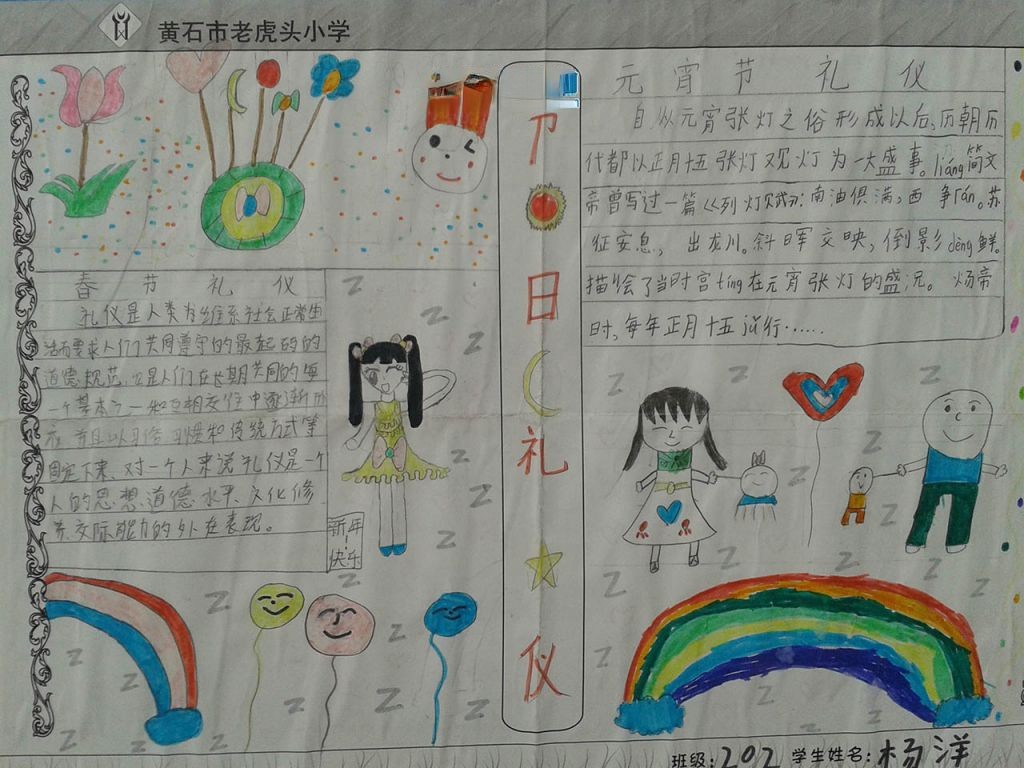 黄石市老虎头小学
春节礼仪
礼仪是人类为维系社会正常生
活而要求人们共同遵守的最起码的
道德规范,它是人们在长期共同的
一个基本 和互相交往中逐渐
并且以习俗习惯和传统方式等
固定下来,对一个人来说,礼仪是一个
人的思想道德水平、文化修
养、交际能力的外在表现。
新年
快乐
节
日
礼
仪
元宵节礼仪
自从元宵张灯之俗形成以后,历朝历
代都以正月十五张灯观灯为一大盛事。liáng简文
帝曾写过一篇《列灯赋》:南油俱满,西 争rán。苏
征安息,出龙川。斜晖交映,倒影dèng鲜。
描绘了当时宫tíng在元宵张灯的盛况。炀帝
时,每年正月十五 行……
班级:202 学生姓名:杨洋